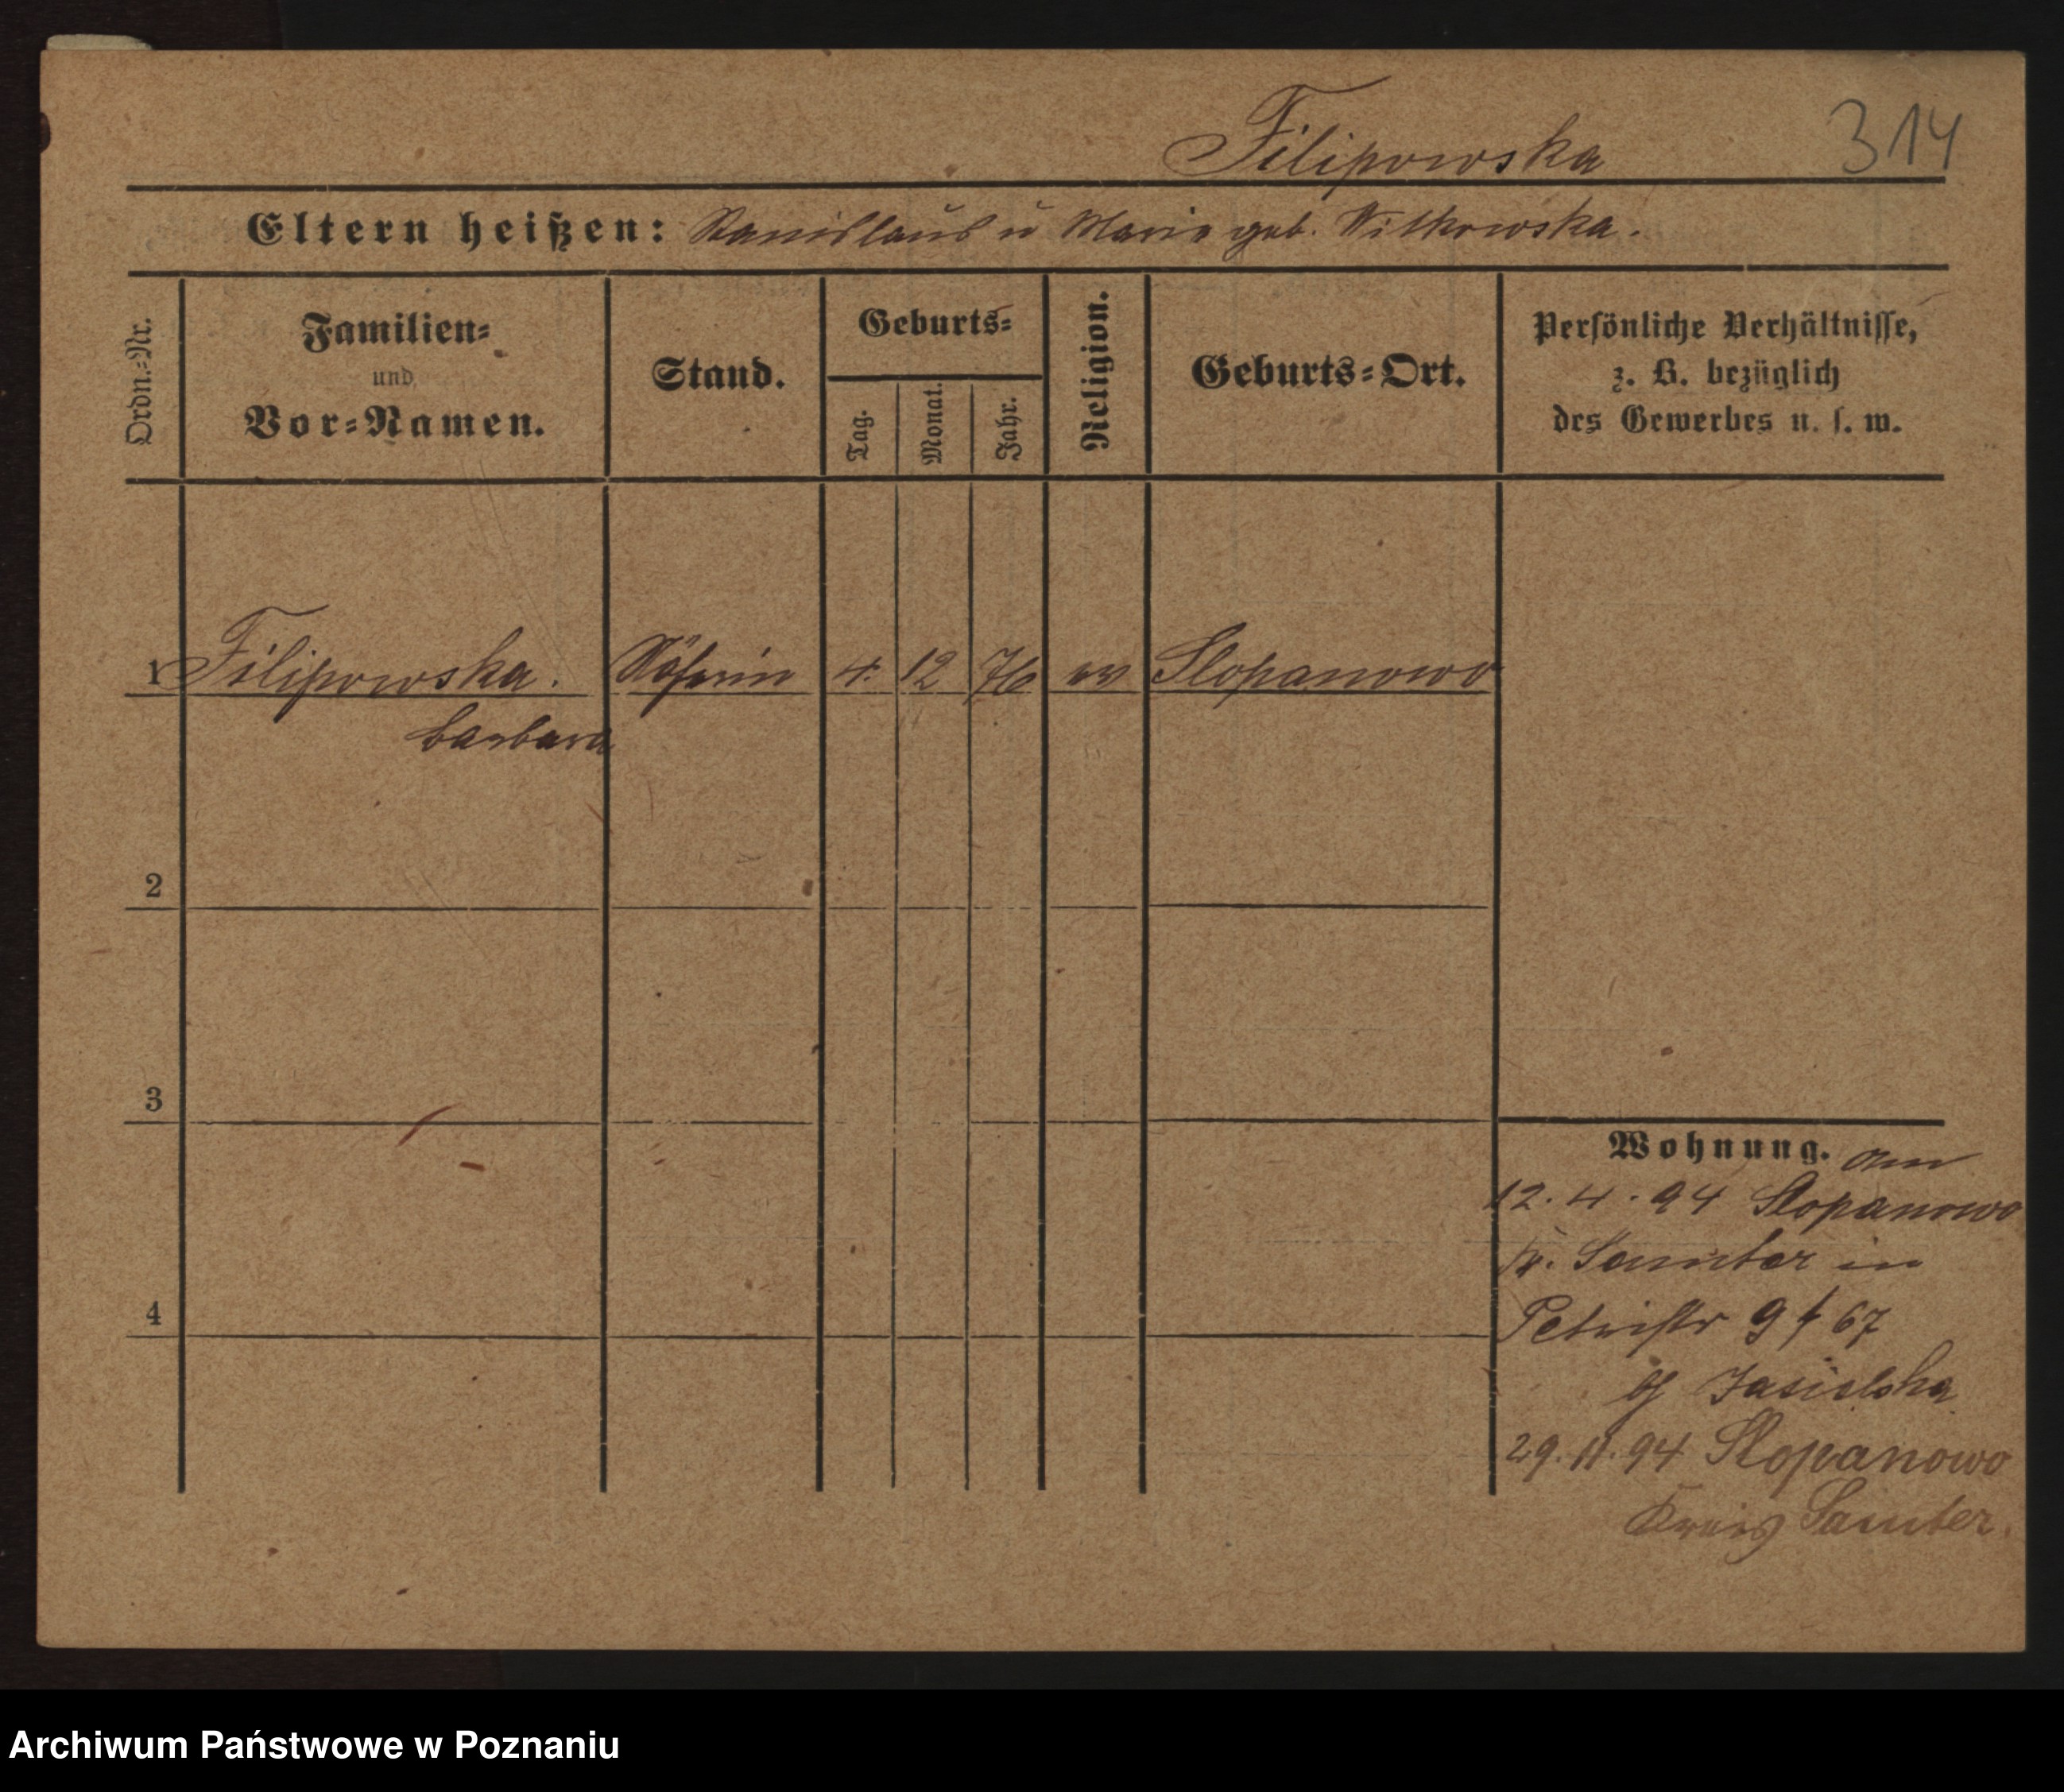 Filipowska 314
Eltern heißen: Stanislaus u Marie geb. Witkowska.
Ordn.-Nr.
Familien-
und
Vor-Namen.
Stand.
Geburts-
Tag.
Monat.
Jahr.
Religion.
Geburts-Ort.
Persönliche Verhältnisse,
z. B. bezüglich
des Gewerbes u. s. w.
1 Filipowska. Näherin 4. 12 76 Slopanowo
Barbara
2
3
4
Wohnung. am
12.4.94 Slopanowo
Kr. Samter in
Petristr 9 67
Jasielska
29.11.94 Slopanowo
Kreis Samter.
Archiwum Państwowe w Poznaniu